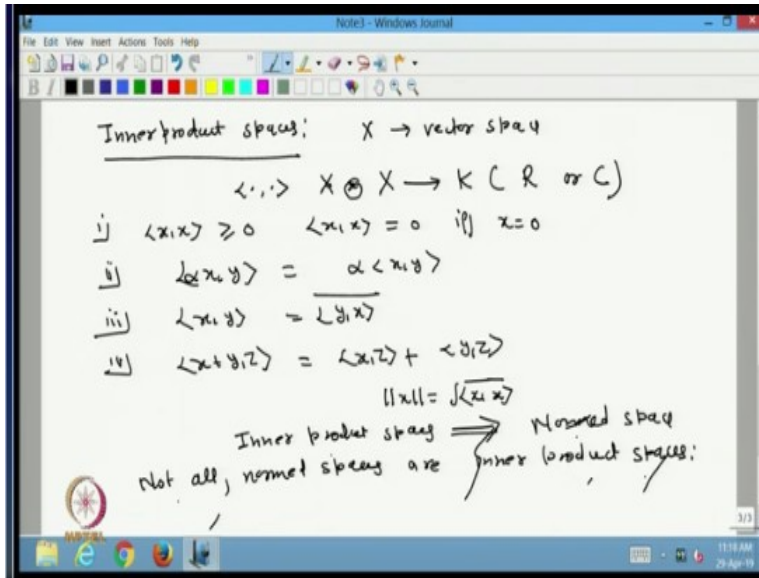 Note3 - Windows Journal
File Edit View Insert Actions Tools Help
B I
Inner product spaces: X → vector space
<·,·> X ⊗ X → K ( R or C)
i) <x,x> ≥ 0 <x,x> = 0 iff x=0
ii) <αx,y> = α<x,y>
iii) <x,y> = \overline{<y,x>}
iv) <x+y,z> = <x,z> + <y,z>
||x|| = √<x,x>
Inner product spaces ⟹ Normed space
Not all, normed spaces are inner product spaces:
NPTEL
3/3
11:18 AM
29-Apr-19